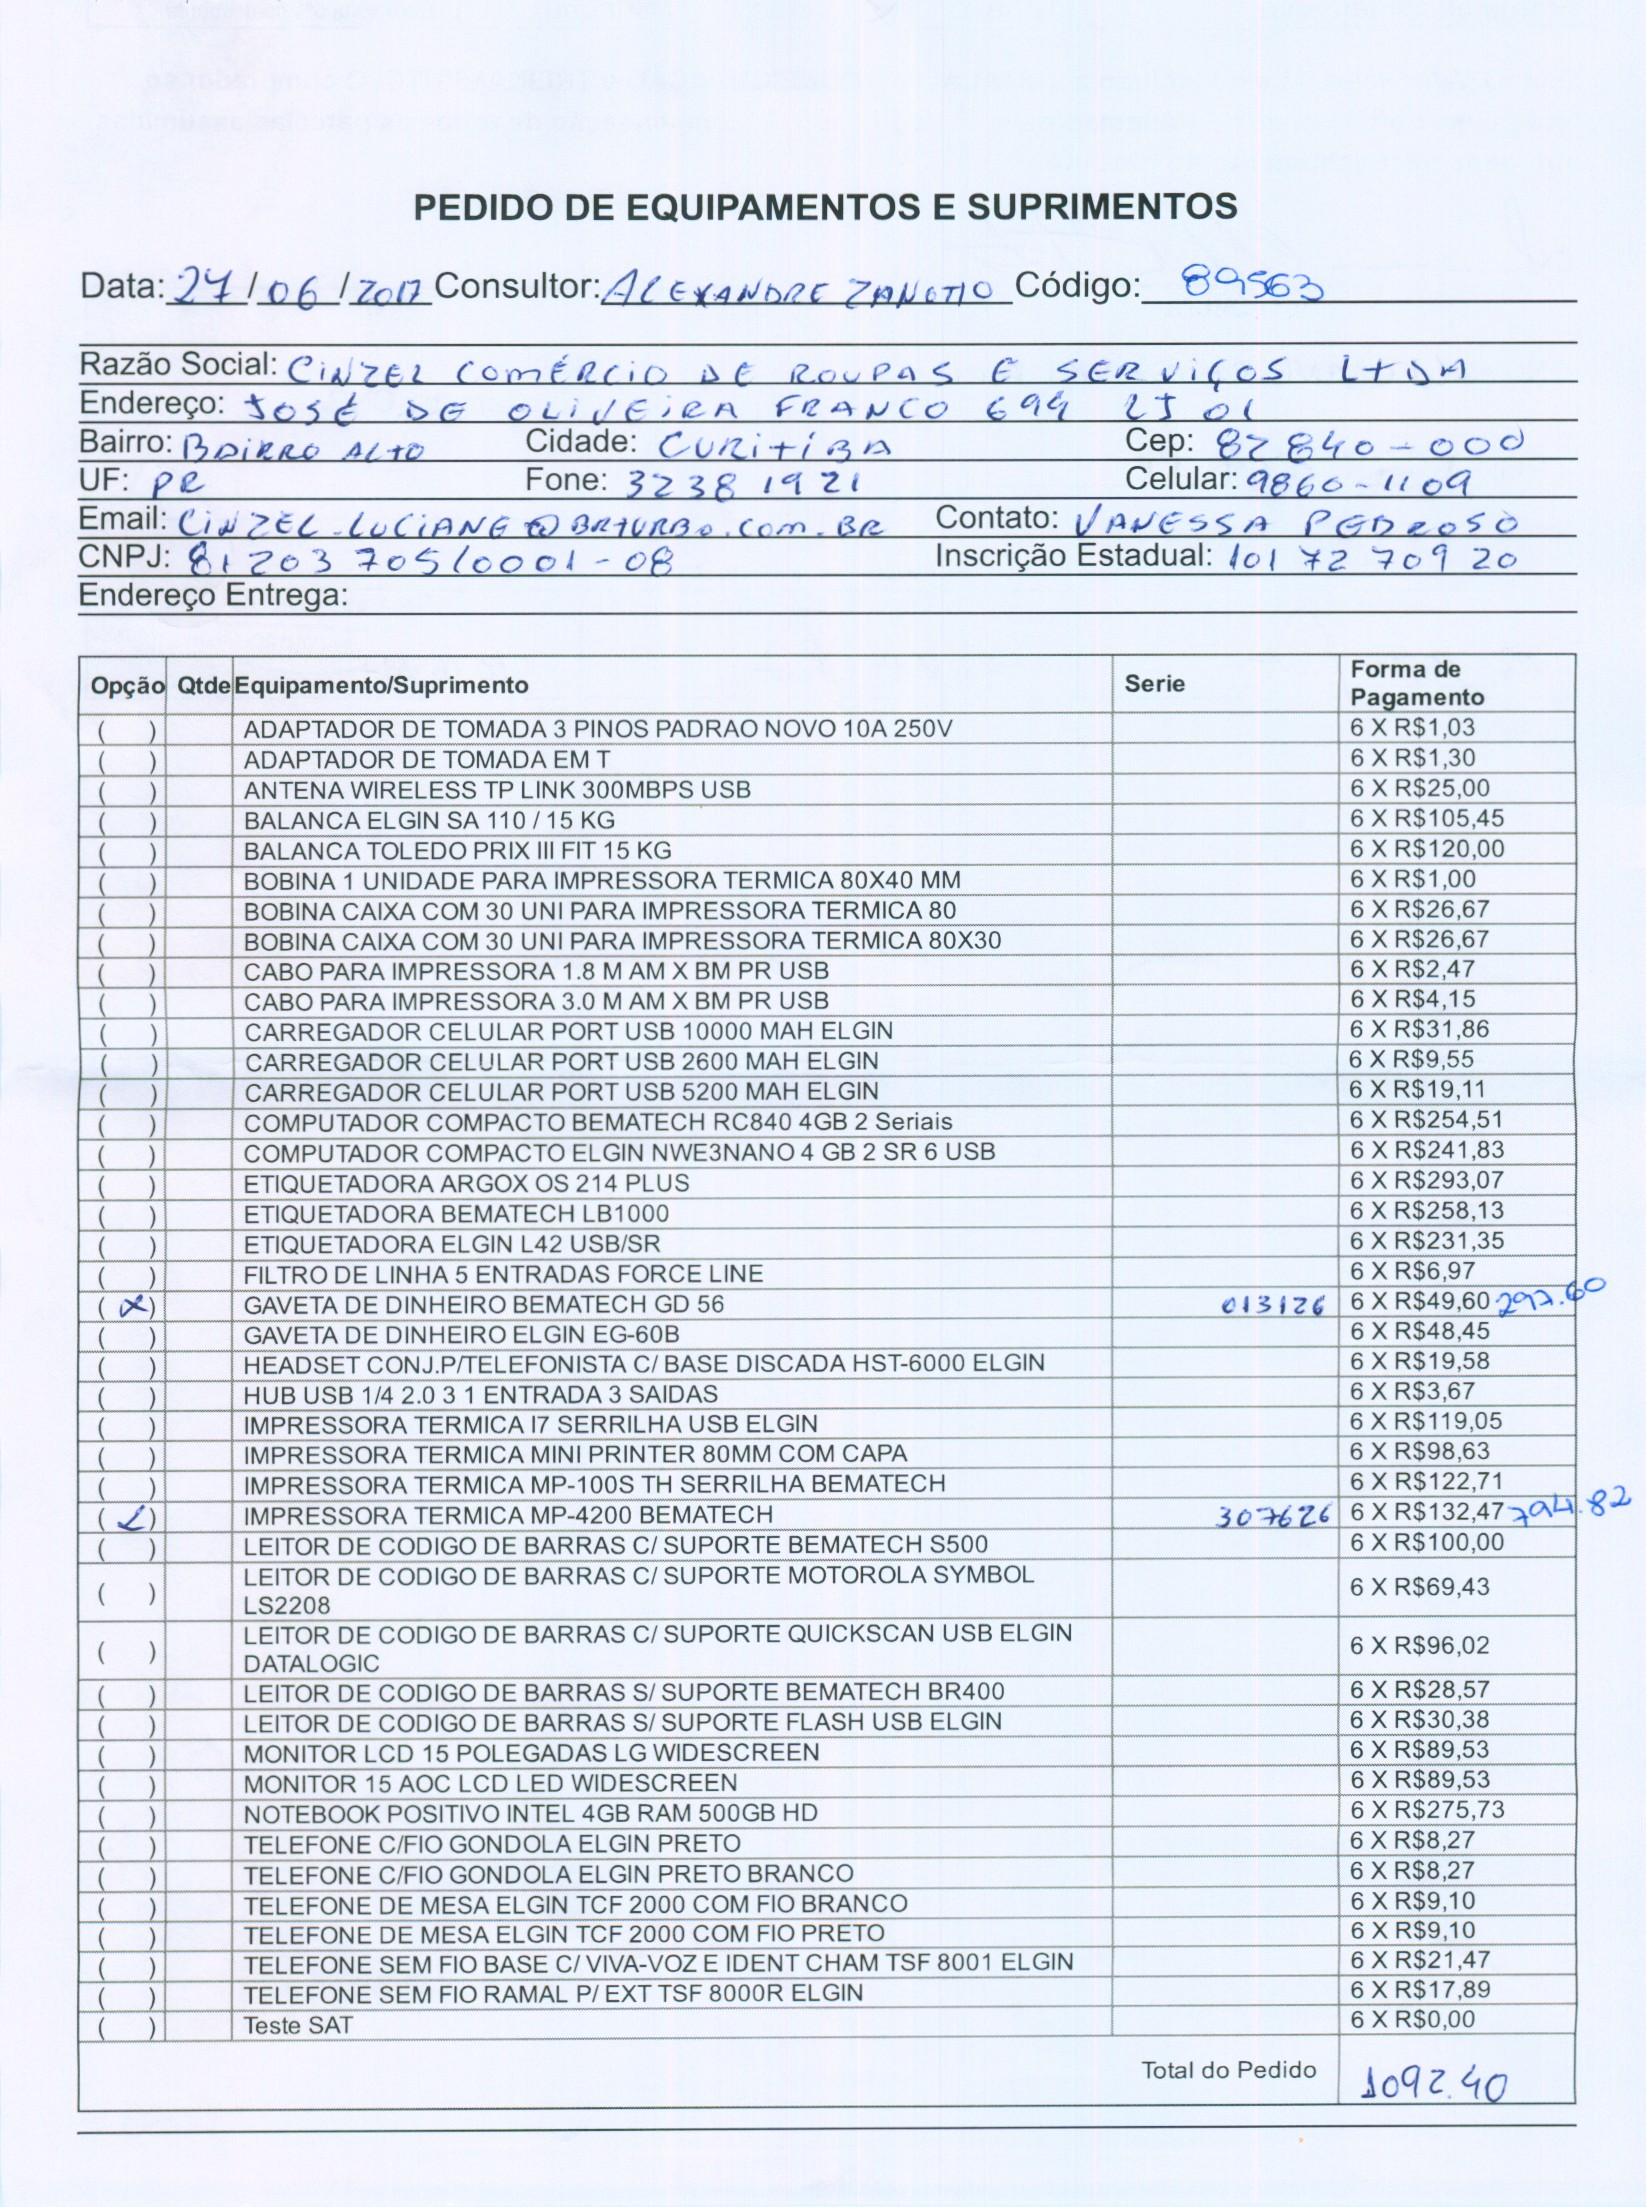 PEDIDO DE EQUIPAMENTOS E SUPRIMENTOS
Data: 27/06/2017 Consultor: ALEXANDRE ZANOTTO Código: 89563
Razão Social: CINZEL COMÉRCIO DE ROUPAS E SERVIÇOS LTDA
Endereço: JOSÉ DE OLIVEIRA FRANCO 694 LJ 01
Bairro: BAIRRO ALTO Cidade: CURITIBA Cep: 82.840-000
UF: PR Fone: 3238 1921 Celular: 9860-1109
Email: CINZEL-LUCIANE@BRTURBO.COM.BR Contato: VANESSA PEDROSO
CNPJ: 81203705/0001-08 Inscrição Estadual: 101 72 709 20
Endereço Entrega:
Opção Qtde Equipamento/Suprimento Serie Forma de Pagamento
( ) ADAPTADOR DE TOMADA 3 PINOS PADRAO NOVO 10A 250V 6 X R$1,03
( ) ADAPTADOR DE TOMADA EM T 6 X R$1,30
( ) ANTENA WIRELESS TP LINK 300MBPS USB 6 X R$25,00
( ) BALANCA ELGIN SA 110 / 15 KG 6 X R$105,45
( ) BALANCA TOLEDO PRIX III FIT 15 KG 6 X R$120,00
( ) BOBINA 1 UNIDADE PARA IMPRESSORA TERMICA 80X40 MM 6 X R$1,00
( ) BOBINA CAIXA COM 30 UNI PARA IMPRESSORA TERMICA 80 6 X R$26,67
( ) BOBINA CAIXA COM 30 UNI PARA IMPRESSORA TERMICA 80X30 6 X R$26,67
( ) CABO PARA IMPRESSORA 1.8 M AM X BM PR USB 6 X R$2,47
( ) CABO PARA IMPRESSORA 3.0 M AM X BM PR USB 6 X R$4,15
( ) CARREGADOR CELULAR PORT USB 10000 MAH ELGIN 6 X R$31,86
( ) CARREGADOR CELULAR PORT USB 2600 MAH ELGIN 6 X R$9,55
( ) CARREGADOR CELULAR PORT USB 5200 MAH ELGIN 6 X R$19,11
( ) COMPUTADOR COMPACTO BEMATECH RC840 4GB 2 Seriais 6 X R$254,51
( ) COMPUTADOR COMPACTO ELGIN NWE3NANO 4 GB 2 SR 6 USB 6 X R$241,83
( ) ETIQUETADORA ARGOX OS 214 PLUS 6 X R$293,07
( ) ETIQUETADORA BEMATECH LB1000 6 X R$258,13
( ) ETIQUETADORA ELGIN L42 USB/SR 6 X R$231,35
( ) FILTRO DE LINHA 5 ENTRADAS FORCE LINE 6 X R$6,97
(X) GAVETA DE DINHEIRO BEMATECH GD 56 013126 6 X R$49,60 297.60
( ) GAVETA DE DINHEIRO ELGIN EG-60B 6 X R$48,45
( ) HEADSET CONJ.P/TELEFONISTA C/ BASE DISCADA HST-6000 ELGIN 6 X R$19,58
( ) HUB USB 1/4 2.0 3 1 ENTRADA 3 SAIDAS 6 X R$3,67
( ) IMPRESSORA TERMICA I7 SERRILHA USB ELGIN 6 X R$119,05
( ) IMPRESSORA TERMICA MINI PRINTER 80MM COM CAPA 6 X R$98,63
( ) IMPRESSORA TERMICA MP-100S TH SERRILHA BEMATECH 6 X R$122,71
(X) IMPRESSORA TERMICA MP-4200 BEMATECH 307626 6 X R$132,47 794.82
( ) LEITOR DE CODIGO DE BARRAS C/ SUPORTE BEMATECH S500 6 X R$100,00
( ) LEITOR DE CODIGO DE BARRAS C/ SUPORTE MOTOROLA SYMBOL
LS2208 6 X R$69,43
( ) LEITOR DE CODIGO DE BARRAS C/ SUPORTE QUICKSCAN USB ELGIN
DATALOGIC 6 X R$96,02
( ) LEITOR DE CODIGO DE BARRAS S/ SUPORTE BEMATECH BR400 6 X R$28,57
( ) LEITOR DE CODIGO DE BARRAS S/ SUPORTE FLASH USB ELGIN 6 X R$30,38
( ) MONITOR LCD 15 POLEGADAS LG WIDESCREEN 6 X R$89,53
( ) MONITOR 15 AOC LCD LED WIDESCREEN 6 X R$89,53
( ) NOTEBOOK POSITIVO INTEL 4GB RAM 500GB HD 6 X R$275,73
( ) TELEFONE C/FIO GONDOLA ELGIN PRETO 6 X R$8,27
( ) TELEFONE C/FIO GONDOLA ELGIN PRETO BRANCO 6 X R$8,27
( ) TELEFONE DE MESA ELGIN TCF 2000 COM FIO BRANCO 6 X R$9,10
( ) TELEFONE DE MESA ELGIN TCF 2000 COM FIO PRETO 6 X R$9,10
( ) TELEFONE SEM FIO BASE C/ VIVA-VOZ E IDENT CHAM TSF 8001 ELGIN 6 X R$21,47
( ) TELEFONE SEM FIO RAMAL P/ EXT TSF 8000R ELGIN 6 X R$17,89
( ) Teste SAT 6 X R$0,00
Total do Pedido 1092.40